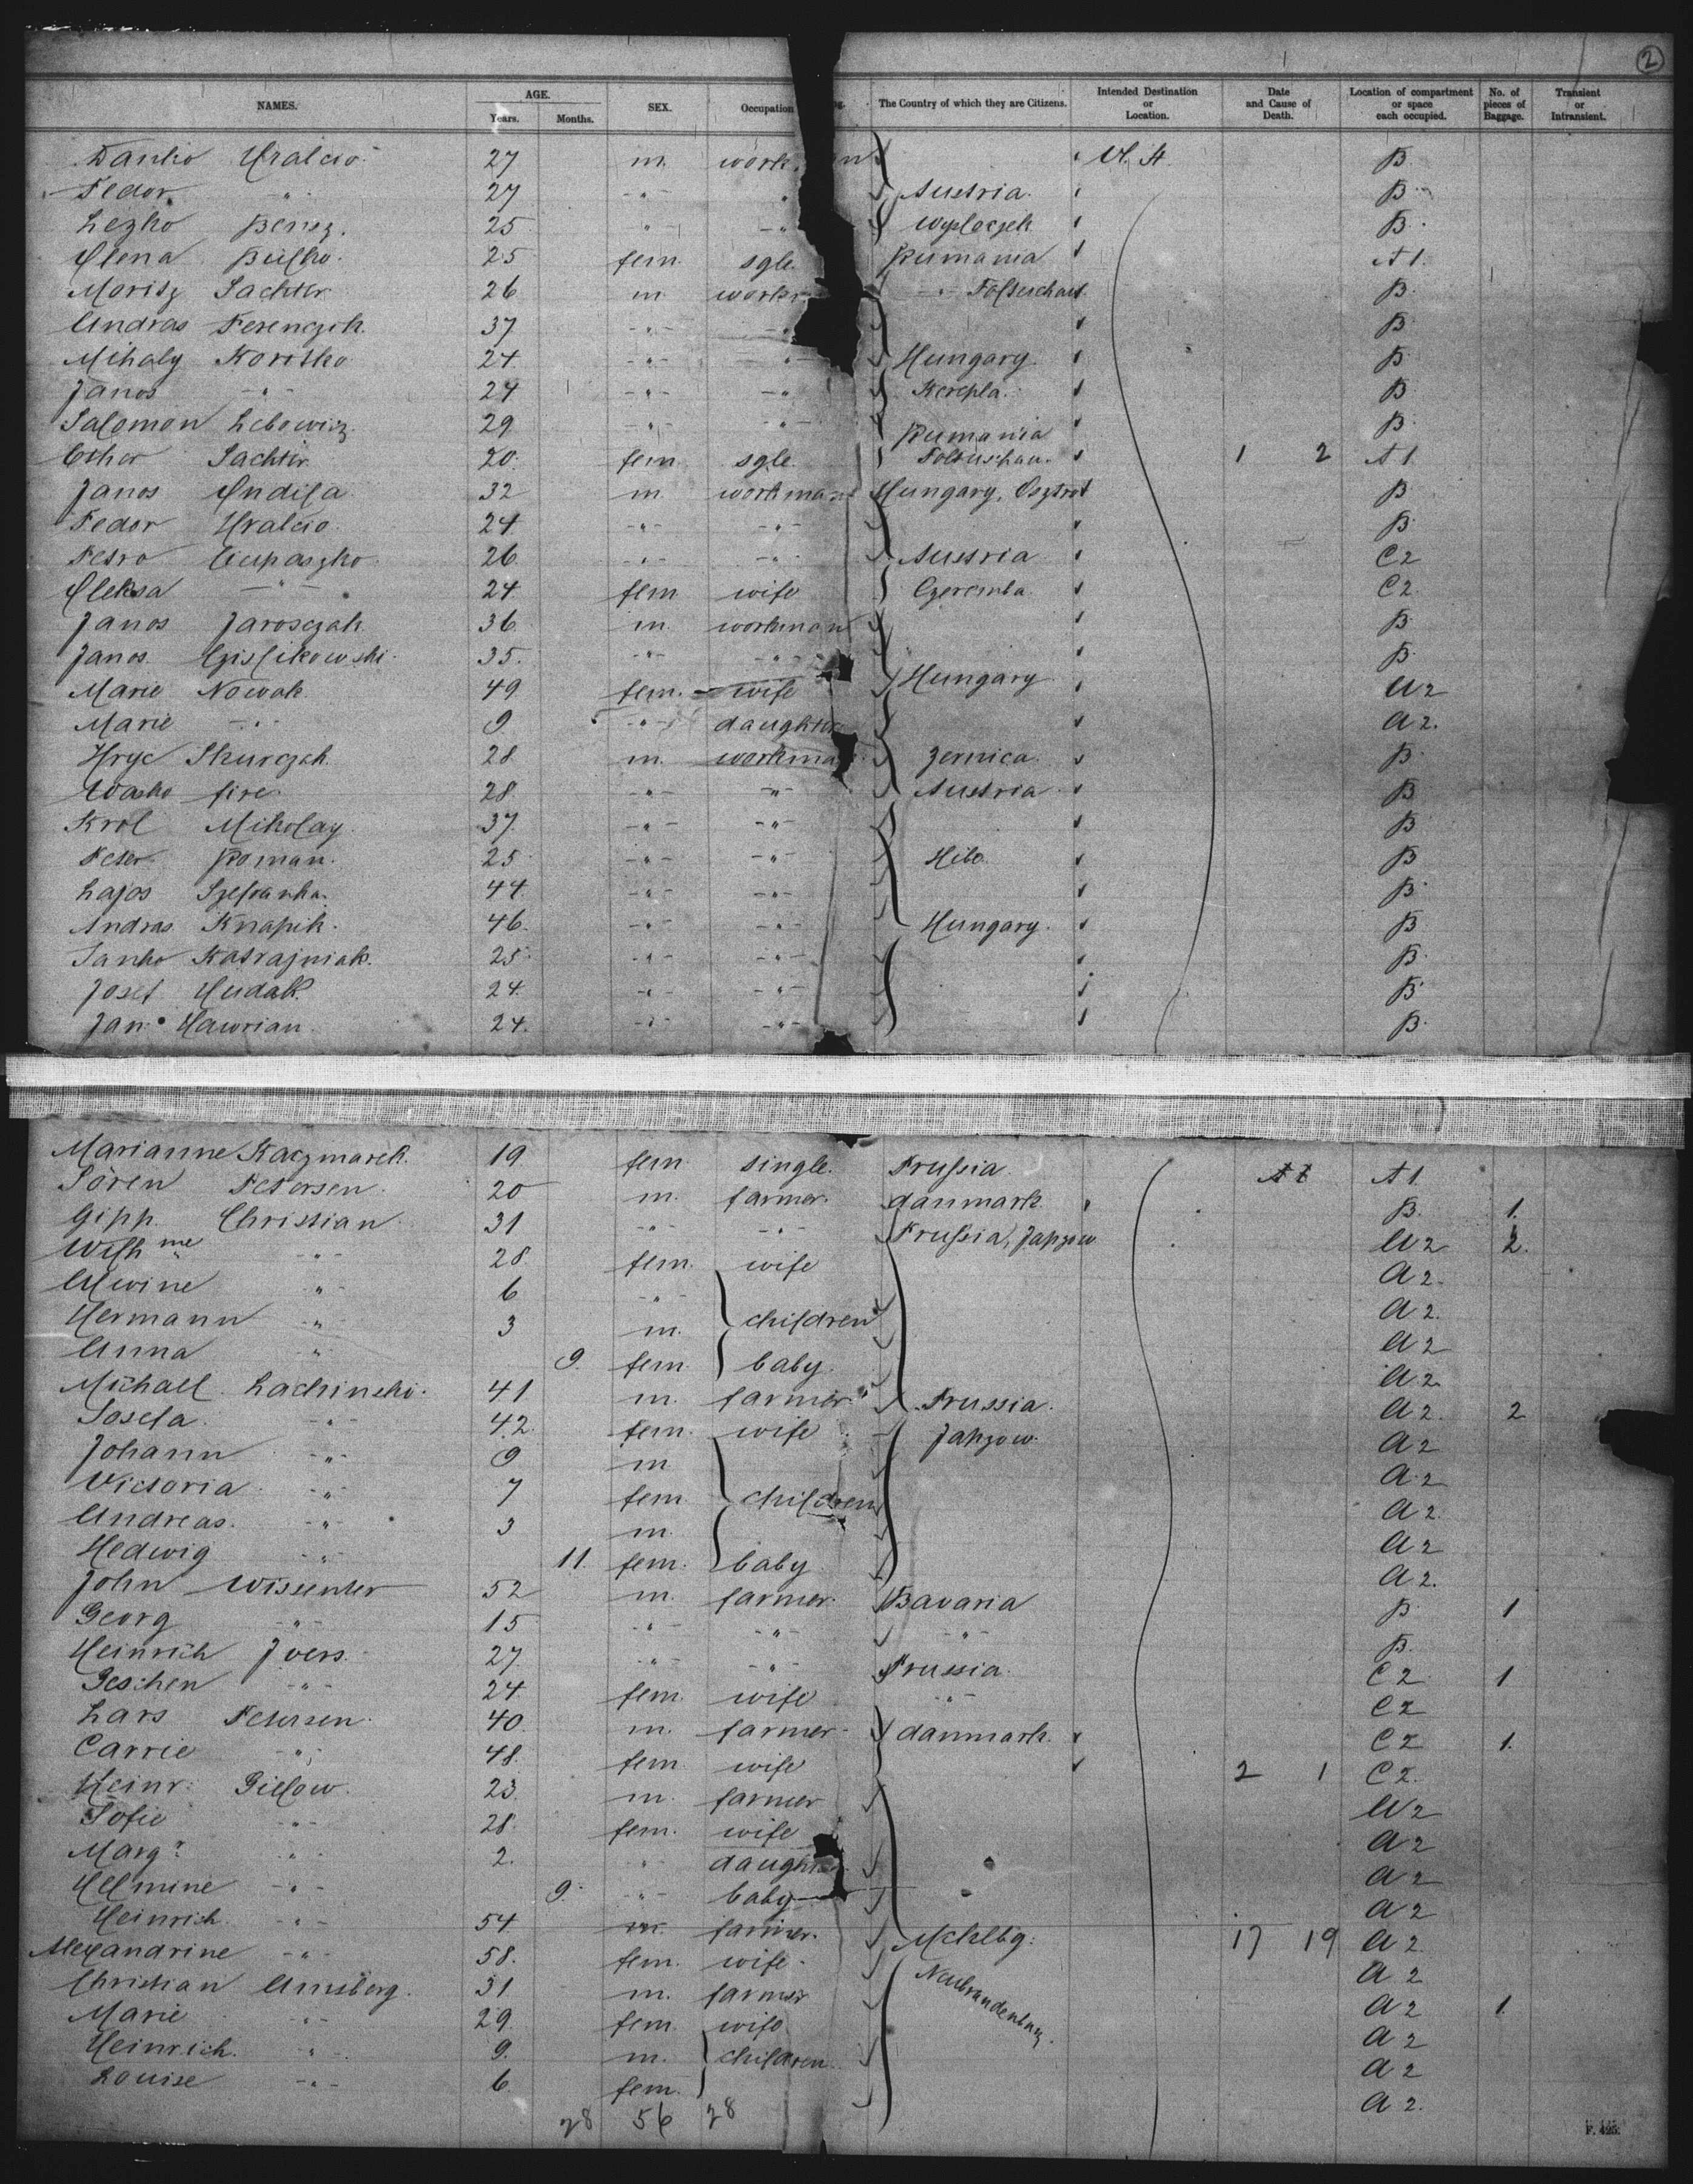 2
NAMES. AGE. SEX. Occupation The Country of which they are Citizens. Intended Destination or Location. Date and Cause of Death. Location of compartment or space each occupied. No. of pieces of Baggage. Transient or Intransient.
Years. Months.
Danko Hralcio 27 m. work an U. St. B
Fedor -"- 27 -"- " Austria B
Lezko Benez. 25 -"- -"- B
Olena 25 fem. sgle. Rumania A 1.
Moritz Sachter 26 m. work -"- B.
Andras Ferenczik. 37 -"- -"- B
Mihaly Koritko 24 -"- -"- Hungary. B
Janos -"- 24 -"- -"- B
Salomon Lebowicz. 29 -"- -"- Rumania B.
Esther Sachter 20. fem. sgle. 1 2 A 1
Janos 32 m. workman Hungary, B
Fedor Hralcio. 24 -"- -"- B
Petro 26 -"- -"- Austria C 2
Oleksa -"- 24 fem wife Czeremba C 2
Janos Jarosczak 36 m. workman B
Janos 35. -"- -"- B.
Marie Nowak 49 fem. wife Hungary A 2
Marie -"- 9 -"- daughter A 2.
Hryc Skurczak. 28 m. workman Zernica. B
Wasko fire. 28 -"- -"- Austria B
Krol Mikolay. 37. -"- -"- B
Peter Roman. 25 -"- -"- Hibo B
Lajos 44 -"- -"- B
Andras Knapik. 46. -"- -"- Hungary. B
Janko Katrajniak. 25 -"- -"- B.
Josef Hudak. 24. -"- -"- B
Jan Hawrian. 24. -"- -"- B.
Marianne Kaczmarek. 19 fem single. Prussia A 1
Sören Petersen. 20 m. farmer. danmark. B. 1.
Gipp Christian 31 -"- -"- Prussia, Japzow A 2 2.
Wilh me -"- 28. fem. wife A 2.
Alwine -"- 6 -"- A 2.
Hermann -"- 3 m. children A 2
Anna -"- 9. fem. baby. A 2
Michael Lachinski. 41 m. farmer Prussia. A 2. 2
Josefa. -"- 42. fem. wife Japzow. A 2
Johann -"- 9 m A 2
Victoria -"- 7 fem children A 2.
Andreas. -"- 3 m. A 2
Hedwig -"- 11. fem. baby A 2.
John Wissenter 52 m. farmer. Bavaria B 1
Georg -"- 15 -"- -"- -"- B.
Heinrich Joers. 27 -"- -"- Prussia. C 2 1
Geschen -"- 24. fem. wife -"- C 2
Lars Petersen. 40. m. farmer danmark. C 2 1.
Carrie -"- 48. fem wife 2 1 C 2.
Heinr. Gielow. 23. m. farmer A 2
Sofie -"- 28. fem. wife A 2
Marg. -"- 2. " daughter A 2
Helmine -"- 9. -"- baby A 2
Heinrich. -"- 54 m. farmer. Mcklbg. 17 19 A 2.
Alexandrine -"- 58. fem. wife. A 2
Christian Amsberg. 31 m. farmer Neubrandenburg. A 2 1.
Marie -"- 29. fem. wife A 2
Heinrich. -"- 9. m. children. A 2
Louise -"- 6 fem. A 2.
28 56 28
F. 425.